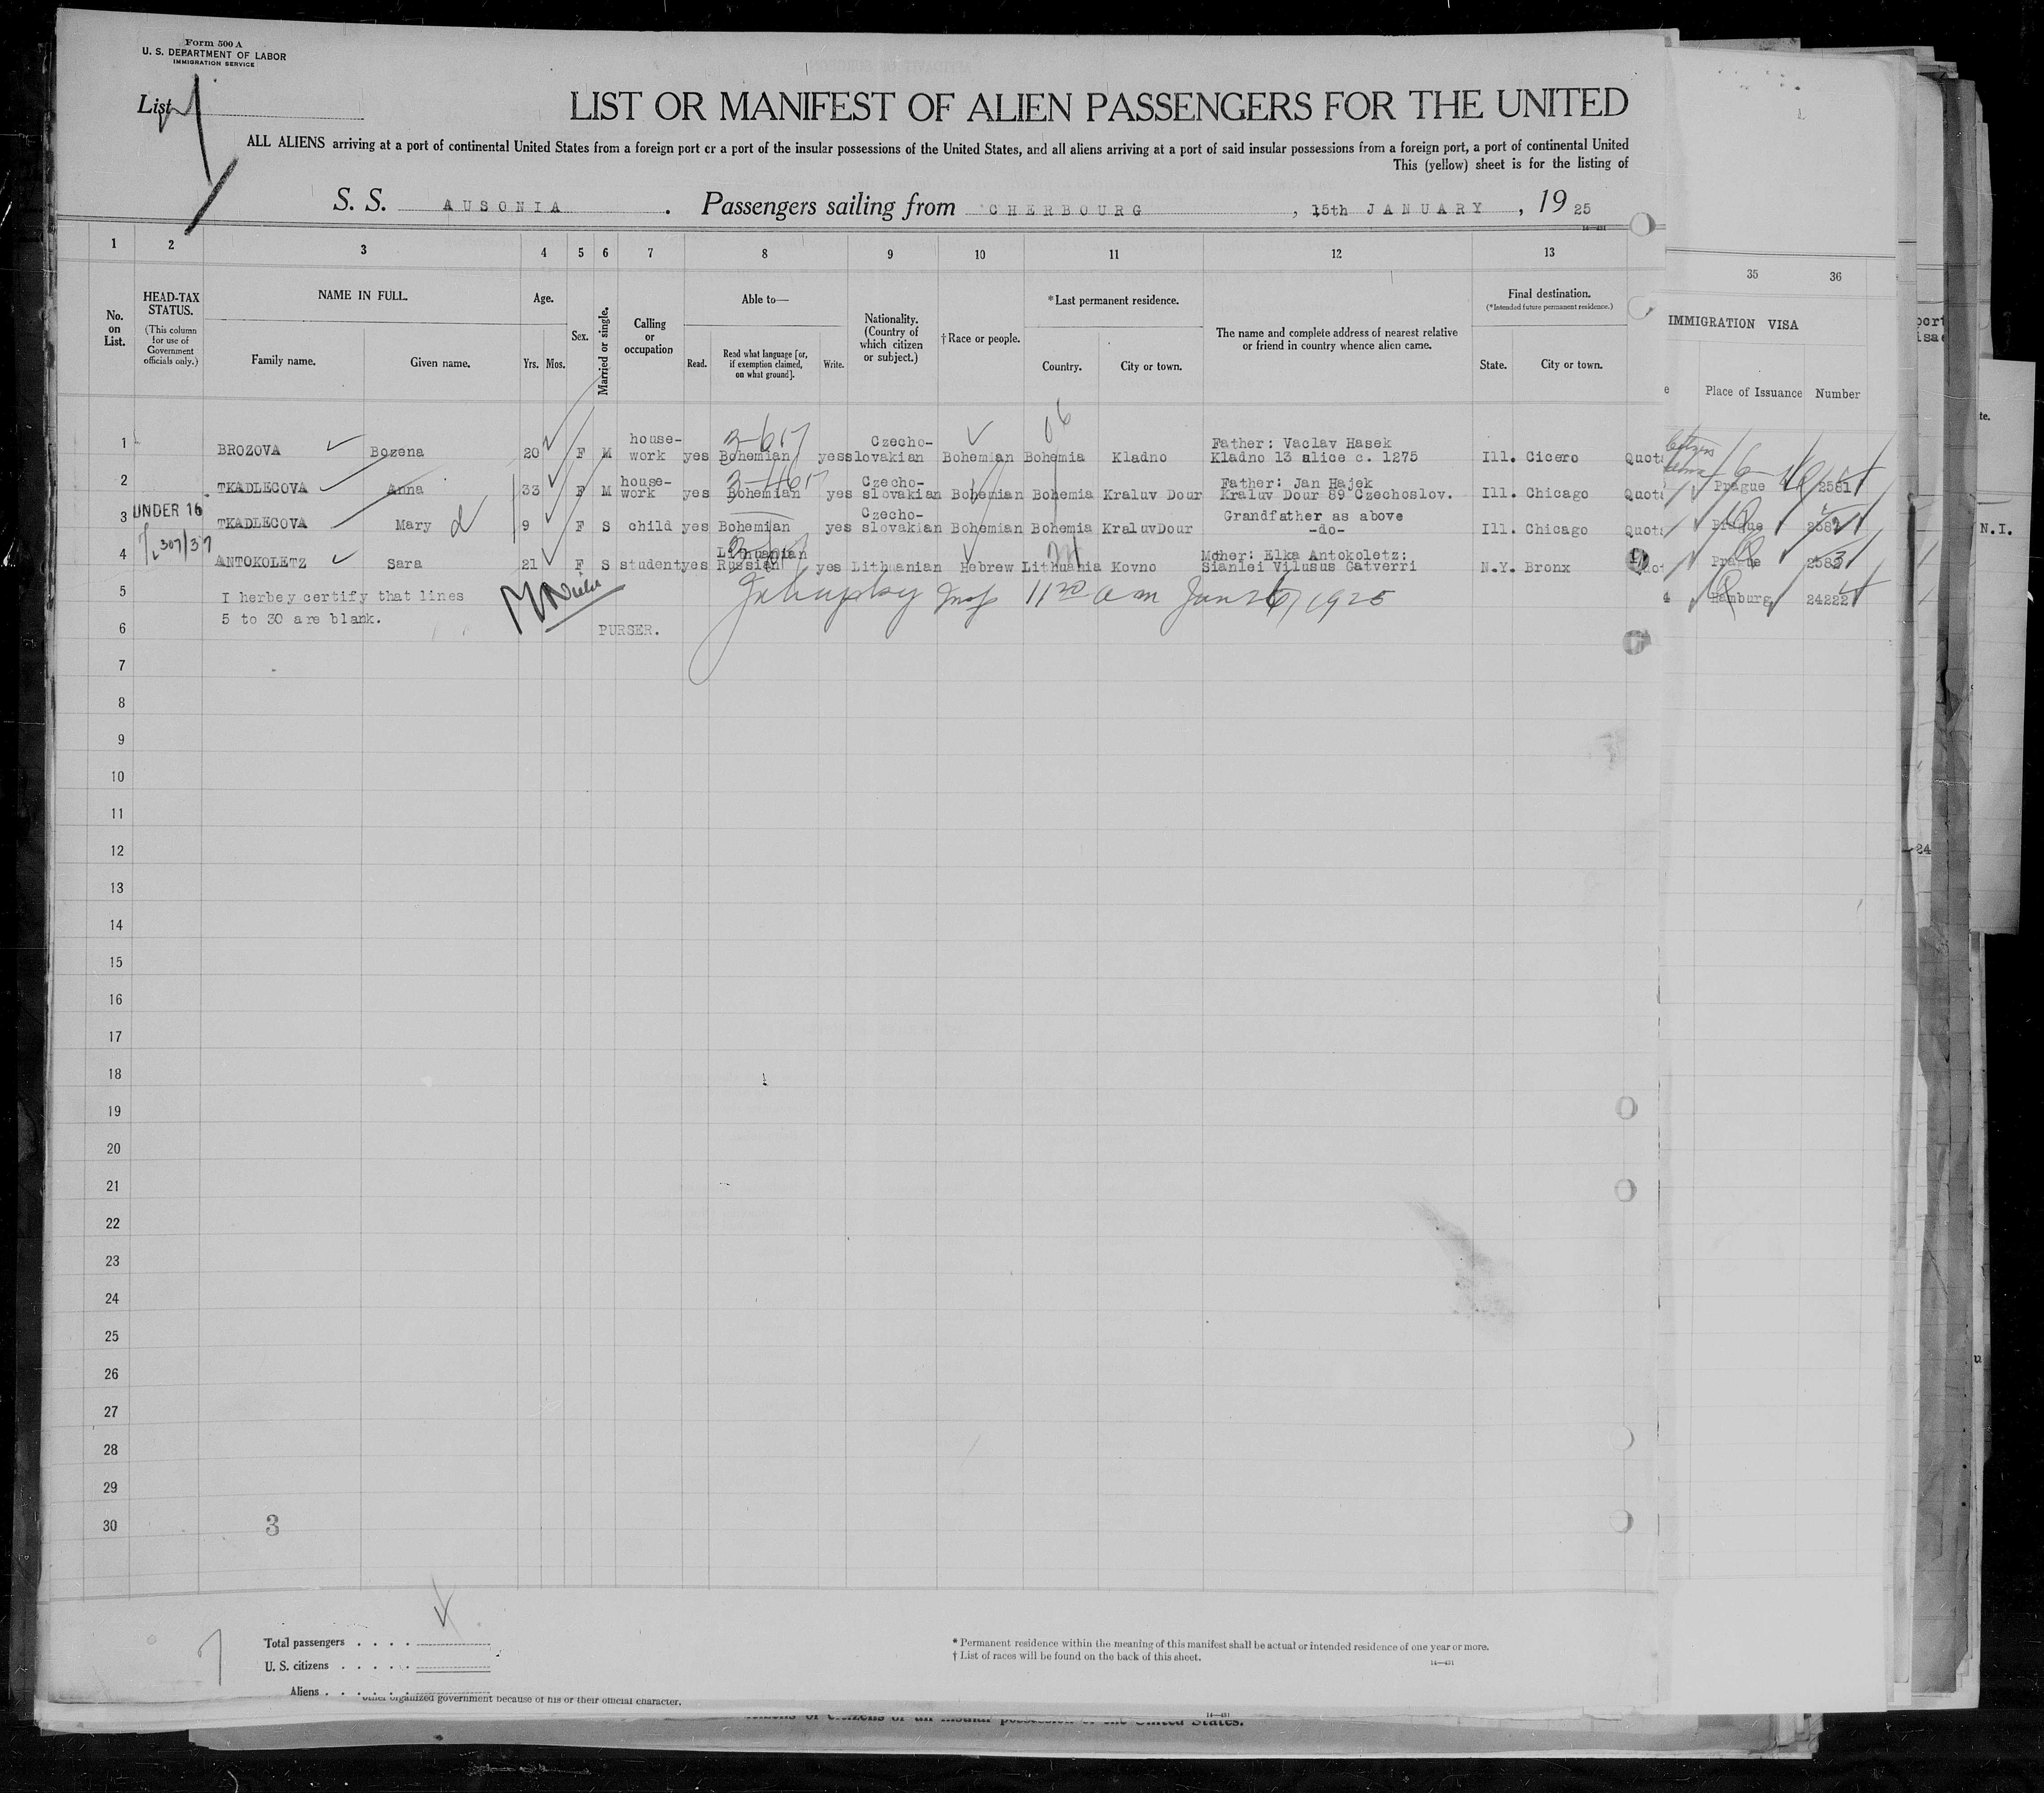 Form 500 A
U. S. DEPARTMENT OF LABOR
IMMIGRATION SERVICE
List
LIST OR MANIFEST OF ALIEN PASSENGERS FOR THE UNITED
ALL ALIENS arriving at a port of continental United States from a foreign port or a port of the insular possessions of the United States, and all aliens arriving at a port of said insular possessions from a foreign port, a port of continental United
This (yellow) sheet is for the listing of
S. S. AUSONIA . Passengers sailing from CHERBOURG , 15th JANUARY , 19 25
14—431
1 2 3 4 5 6 7 8 9 10 11 12 13 35 36
No. on List.
HEAD-TAX STATUS.
(This column for use of Government officials only.)
NAME IN FULL.
Family name. Given name.
Age.
Yrs. Mos.
Sex.
Married or single.
Calling or occupation
Able to—
Read. Read what language [or, if exemption claimed, on what ground]. Write.
Nationality. (Country of which citizen or subject.)
† Race or people.
*Last permanent residence.
Country. City or town.
The name and complete address of nearest relative or friend in country whence alien came.
Final destination.
(*Intended future permanent residence.)
State. City or town.
IMMIGRATION VISA
Place of Issuance Number
1 BROZOVA Bozena 20 F M house-work yes Bohemian yes Czecho-slovakian Bohemian Bohemia Kladno Father: Vaclav Hasek Kladno 13 alice c. 1275 Ill. Cicero Quota
2 TKADLECOVA Anna 33 F M house-work yes Bohemian yes Czecho-slovakian Bohemian Bohemia Kraluv Dour Father: Jan Hajek Kraluv Dour 89 Czechoslov. Ill. Chicago Quota Prague 2581
UNDER 16
3 TKADLECOVA Mary 9 F S child yes Bohemian yes Czecho-slovakian Bohemian Bohemia KraluvDour Grandfather as above -do- Ill. Chicago Quota Prague 2582
4 ANTOKOLETZ Sara 21 F S student yes Lithuanian Russian yes Lithuanian Hebrew Lithuania Kovno Mother: Elka Antokoletz: Sianlei Vilusus Gatverri N.Y. Bronx Quot Prague 2583
5 I herbey certify that lines
4 Hamburg 24222
6 5 to 30 are blank.
PURSER.
Insp 11 20 am Jan 26, 1925
7
8
9
10
11
12
13
14
15
16
17
18
19
20
21
22
23
24
25
26
27
28
29
30
3
N.I.
24
Total passengers . . . .
U. S. citizens . . . . .
Aliens . . . . . .
* Permanent residence within the meaning of this manifest shall be actual or intended residence of one year or more.
† List of races will be found on the back of this sheet.
14—431
other organized government because of his or their official character.
14—431
citizens of an insular possession of the United States.